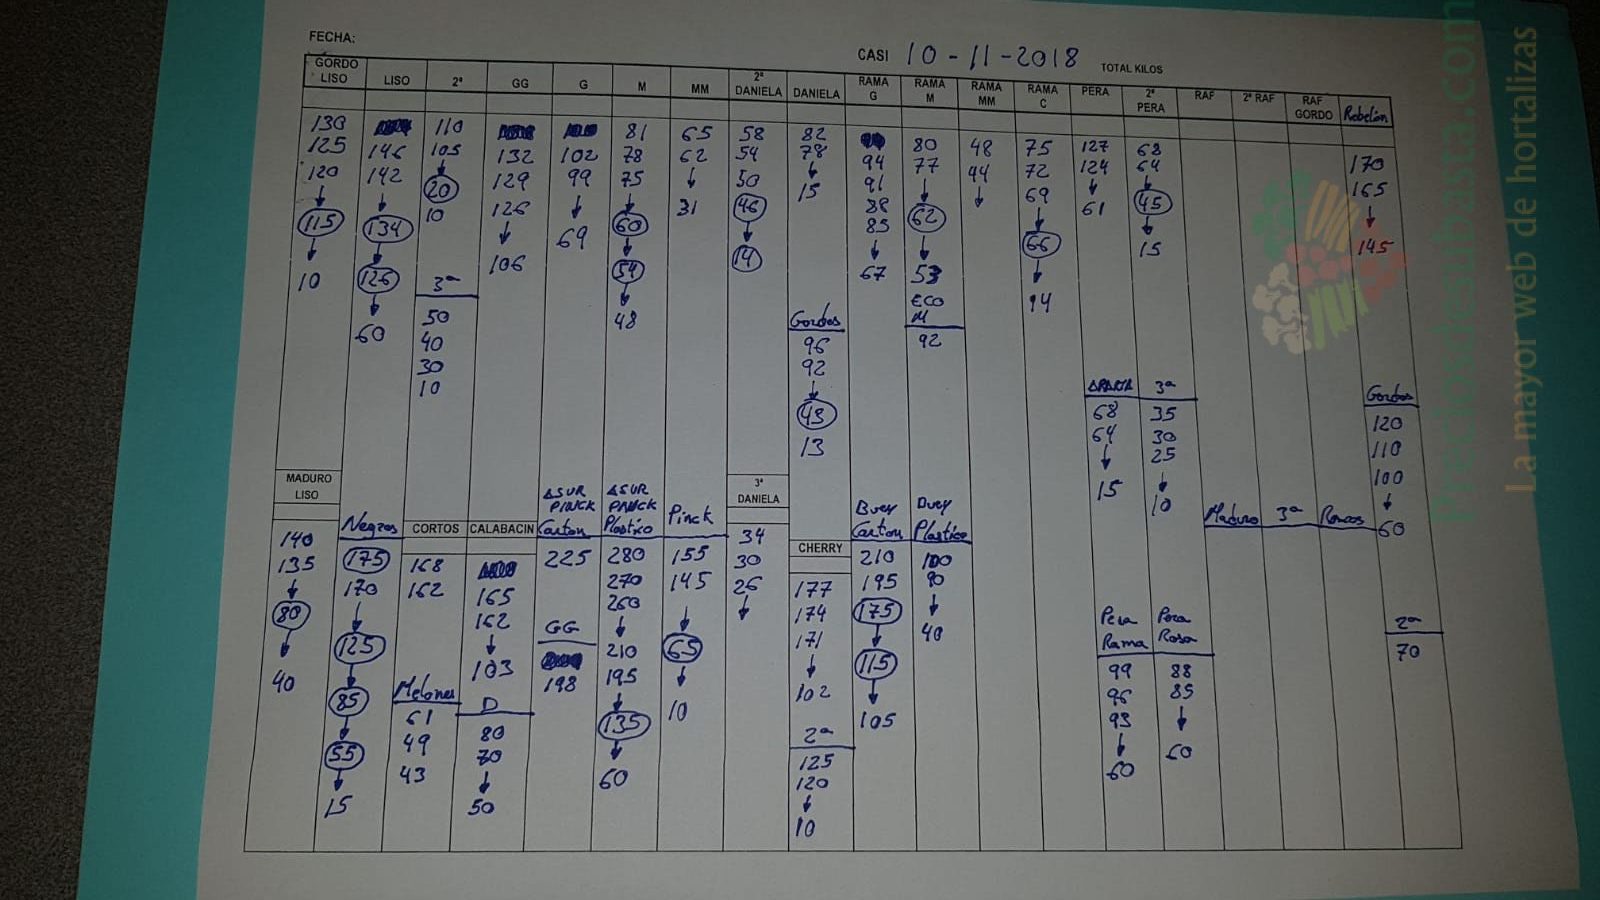 FECHA:
CASI 10-11-2018 TOTAL KILOS
GORDO LISO
LISO
2ª
GG
G
M
MM
2ª DANIELA
DANIELA
RAMA G
RAMA M
RAMA MM
RAMA C
PERA
2ª PERA
RAF
2ª RAF
RAF GORDO
Rebelión
130 110 81 65 58 82 80 48 75 127 68
125 146 105 132 102 78 62 54 78 94 77 44 72 124 64 170
120 142 20 129 99 75 50 15 91 69 165
115 134 10 126 60 31 46 88 62 61 45
85 66 15 145
10 126 106 69 54 14 67 53
60 48 94
3ª
50
40
30
10
Gordos
96
92
43
13
ECO M
92
3ª
68 35
64 30
25
15 10
Gordos
120
110
100
60
2ª
70
Maduro 3ª Roncos
MADURO LISO
140
135
80
40
Negros
175
170
125
85
55
15
CORTOS
168
162
Melones
61
49
43
CALABACIN
165
162
103
D
80
70
50
ASUR PINCK Carton
225
GG
198
ASUR PINCK Plastico
280
270
260
210
195
135
60
Pinck
155
145
65
10
3ª DANIELA
34
30
26
CHERRY
177
174
171
102
2ª
125
120
10
Buey Carton
210
195
175
115
105
Buey Plastico
100
90
40
Pera Rama
99
96
93
60
Pera Rosa
88
85
60
Preciosdesubasta.com
La mayor web de hortalizas